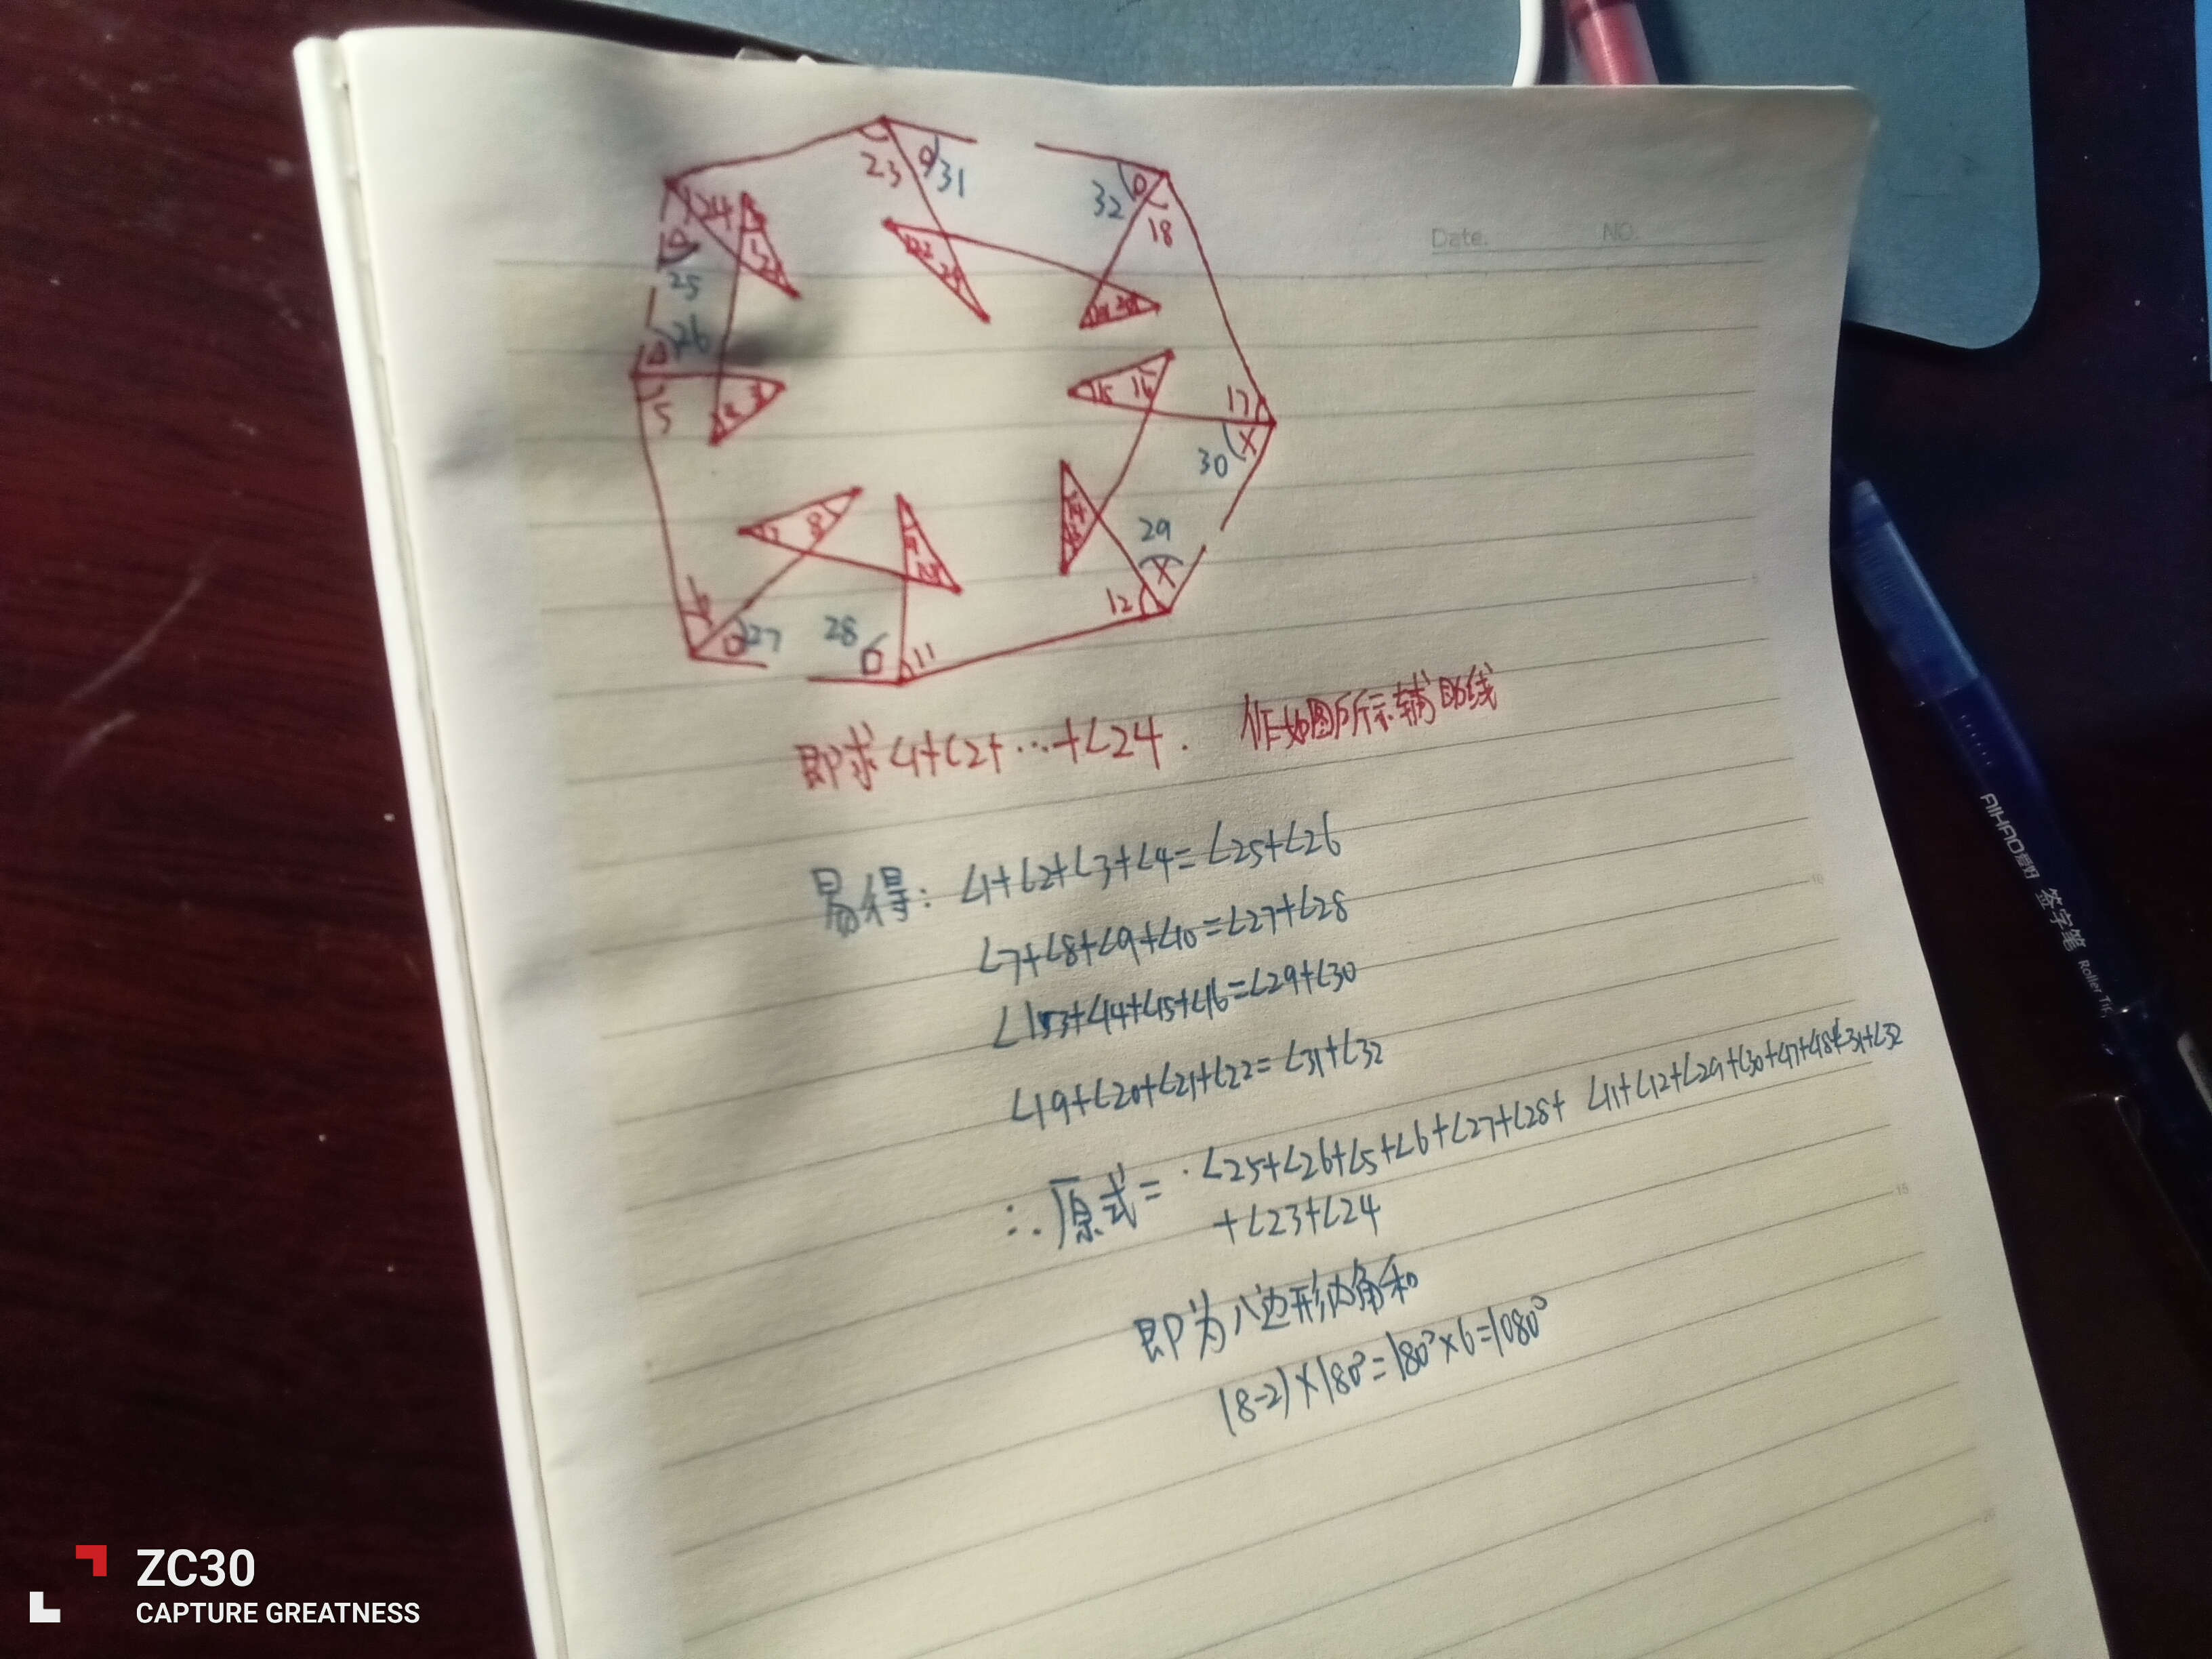 23
31
32
18
24
1
2
25
26
5
4
3
17
30
15
16
14
29
12
7
8
9
10
6
27
28
11
Date.
NO.
即求∠1+∠2+…+∠24. 作如图所示辅助线
易得: ∠1+∠2+∠3+∠4=∠25+∠26
∠7+∠8+∠9+∠10=∠27+∠28
∠13+∠14+∠15+∠16=∠29+∠30
∠19+∠20+∠21+∠22=∠31+∠32
∴原式=∠25+∠26+∠5+∠6+∠27+∠28+ ∠11+∠12+∠29+∠30+∠17+∠18+∠31+∠32
+∠23+∠24
即为八边形内角和
(8-2)×180°=180°×6=1080°
AIHAO爱好 签字笔 Roller
ZC30
CAPTURE GREATNESS